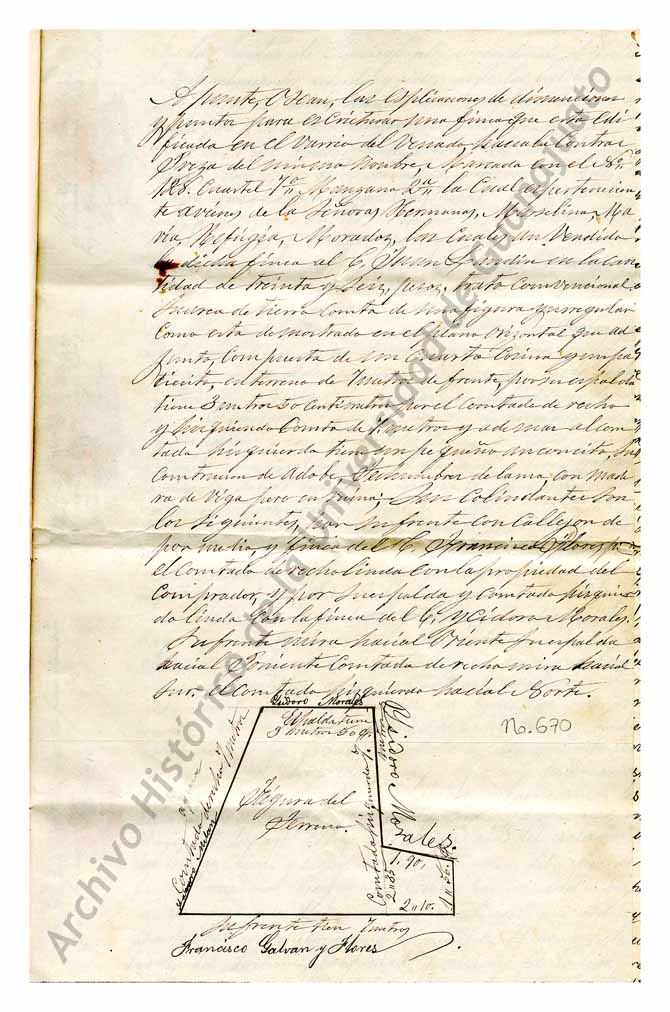 Apunte, O sean, las esplicaciones de dimenciones
y puntos para escriturar una finca que esta Edi
ficada en el Varrio del Venado, para la contra
Preza del mismo Nombre, Marcada con el Nº.
128. Cuartel 7º Manzana 2ª la Cual es pertenecien
te avienes de la Señoras Hermanas, Marselina, Ma
ria, Refugia, Morados, las Cuales an Vendido
la dicha finca al C. Juan en la Can
tidad de treinta y Seis, pesos, trato Convencional
Su area de tierra Consta de una figura yrregular
Como esta demostrado en el plano Orizontal que ad
junto, Compuesta de un Cuarto Cosina y un pa
ticcito, en terreno de 7 metros de frente, por su espalda
tiene 3 metros 50 centimetros por el Comtado derecho
y hisquierdo Consta de 7 metros y ademas al com
tado hisquierdo tiene un pequeño anconcito, Su
Comtrucion de Adobe, de lama con made
ra de Viga pero en Ruina; Sus Colindantes son
los Siguientes, por su frente con Callejon de
por medio y finca del C. Francisco Flores por
el Comtado derecho linda Con la propiedad del
Comprador, y por Suespalda y Comtado hisquier
do linda Con la finca del C. Ycidoro Morales.
Sufrente mira hacial Oriente Suespalda
hacial Poniente Comtado derecho mira hacial
Sur. el Comtado hisquierdo hacial Norte.
Ysidoro Morales
Espalda tiene
3 metros 50 c.
No. 670
Comtado derecho 7 metros
Figura del
Terreno.
Comtado hisquierdo 7. metros
Ysidoro Morales.
1. 90.
2 " 35
2 " 10.
Su frente tien 7 metros
Francisco Galvan y Flores
Archivo Histórico de la Universidad de Guanajuato